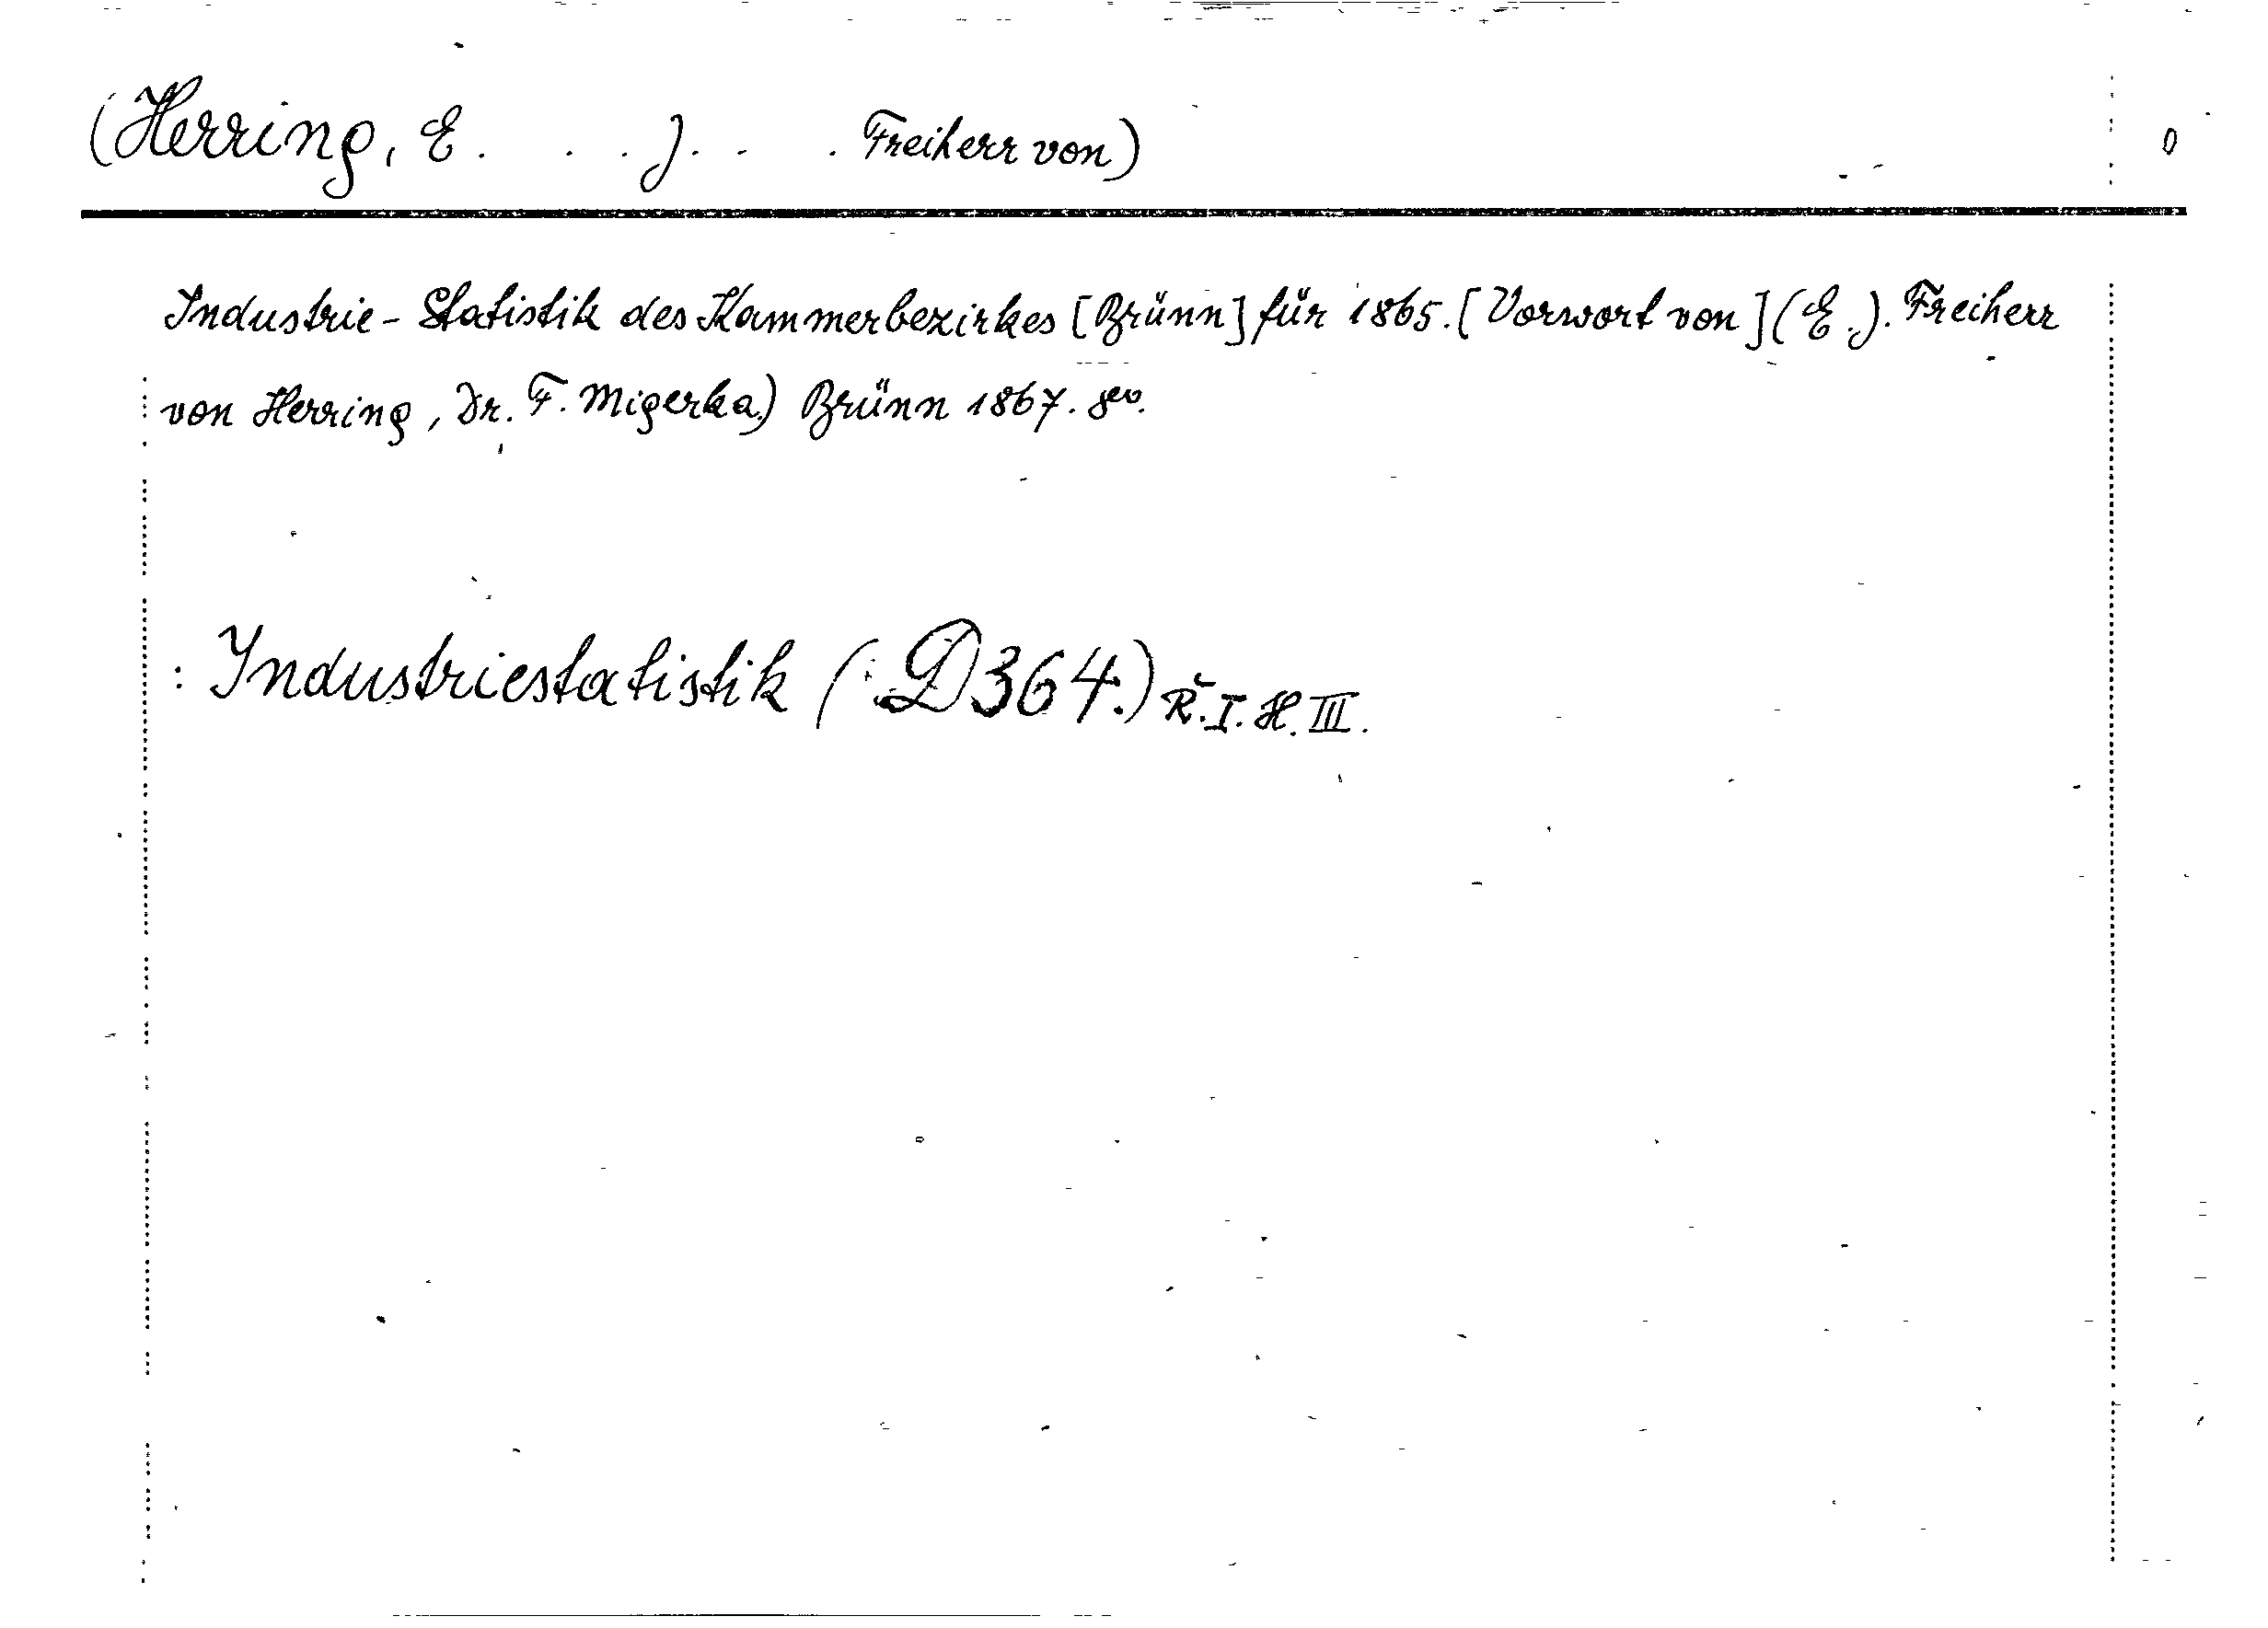 (Herring, E. . . J. . . . Freiherr von)
Industrie-Statistik des Kammerbezirkes [Brünn] für 1865. [Vorwort von] (E. J. Freiherr
von Herring, Dr. F. Migerka.) Brünn 1867. 8vo.
: Industriestatistik (: D364.) Ř. I. H. III.